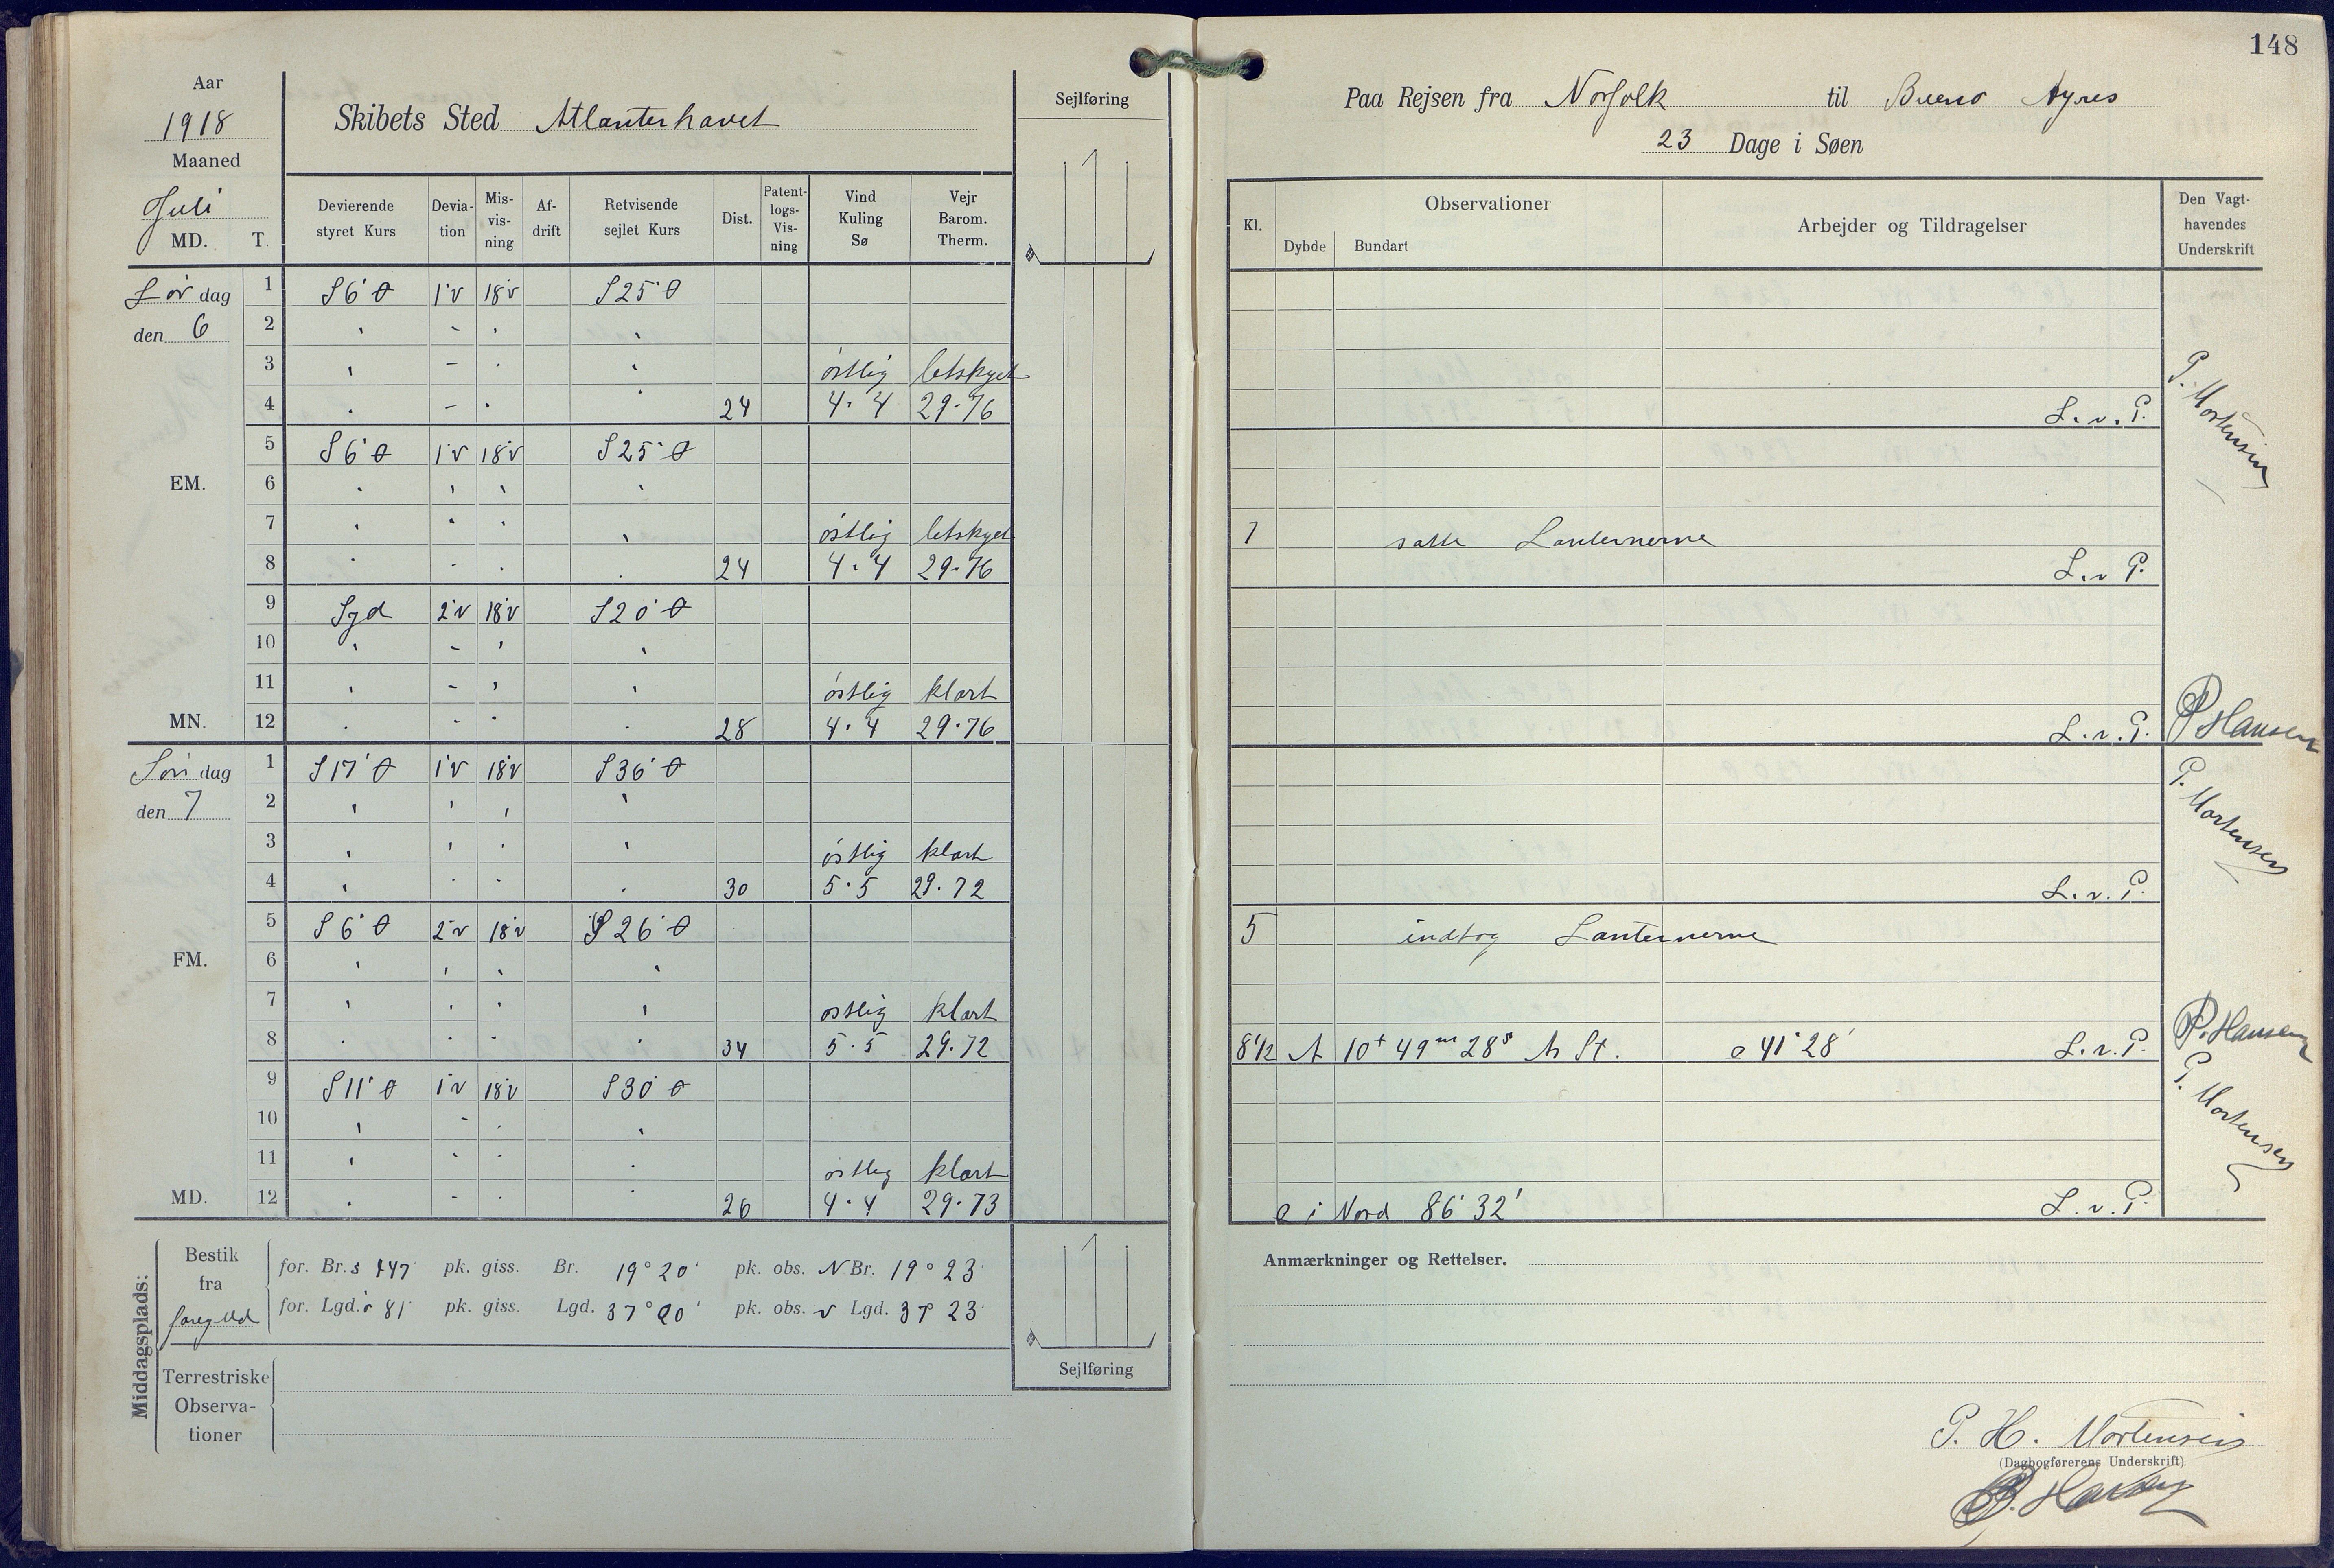 148
Aar
1918
Maaned
Juli
MD. T.
Skibets Sted Atlanterhavet
Sejlføring
Devierende styret Kurs
Deviation
Misvisning
Afdrift
Retvisende sejlet Kurs
Dist.
Patentlogs-Visning
Vind Kuling Sø
Vejr Barom. Therm.
Lør dag
den 6
1 S6°Ø 1°V 18°V S25°Ø
2 ' - ' '
3 ' - ' ' østlig letskyet
4 ' - ' ' 24 4·4 29·76
5 S6°Ø 1°V 18°V S25°Ø
EM.
6 ' ' ' '
7 ' ' ' ' østlig letskyet
8 ' ' ' ' 24 4·4 29·76
9 Syd 2°V 18°V S20°Ø
10 ' - ' '
11 ' - ' ' østlig klart
MN. 12 ' - ' ' 28 4·4 29·76
Søn dag
den 7
1 S17°Ø 1°V 18°V S36°Ø
2 ' ' ' '
3 ' ' ' ' østlig klart
4 ' ' ' ' 30 5·5 29·72
5 S6°Ø 2°V 18°V S26°Ø
FM. 6 ' ' ' '
7 ' ' ' ' østlig klart
8 ' ' ' ' 34 5·5 29·72
9 S11°Ø 1°V 18°V S30°Ø
10 ' - ' '
11 ' ' ' ' østlig klart
MD. 12 ' - ' ' 26 4·4 29·73
Middagsplads:
Bestik fra
for. Br. s 147' pk. giss. Br. 19° 20' pk. obs. N Br. 19° 23'
for. Lgd. ø 81' pk. giss. Lgd. 37° 20' pk. obs. v Lgd. 37° 23'
Terrestriske Observationer
Sejlføring
Paa Rejsen fra Norfolk til Bueno Ayres
23 Dage i Søen
Kl.
Observationer
Dybde
Bundart
Arbejder og Tildragelser
Den Vagthavendes Underskrift
L.v.P. P. Mortensen
7 satte Lanternerne
L.v P.
L.v.P. P Hansen
L.v.P. P. Mortensen
5 indtog Lanternerne
8½ 10 49ᵐ 28ˢ St. 41° 28' L.v.P. P. Hansen
i Nord 86° 32' L.v.P. P. Mortensen
Anmærkninger og Rettelser.
P. H. Mortensen
(Dagbogførerens Underskrift).
P. Hansen